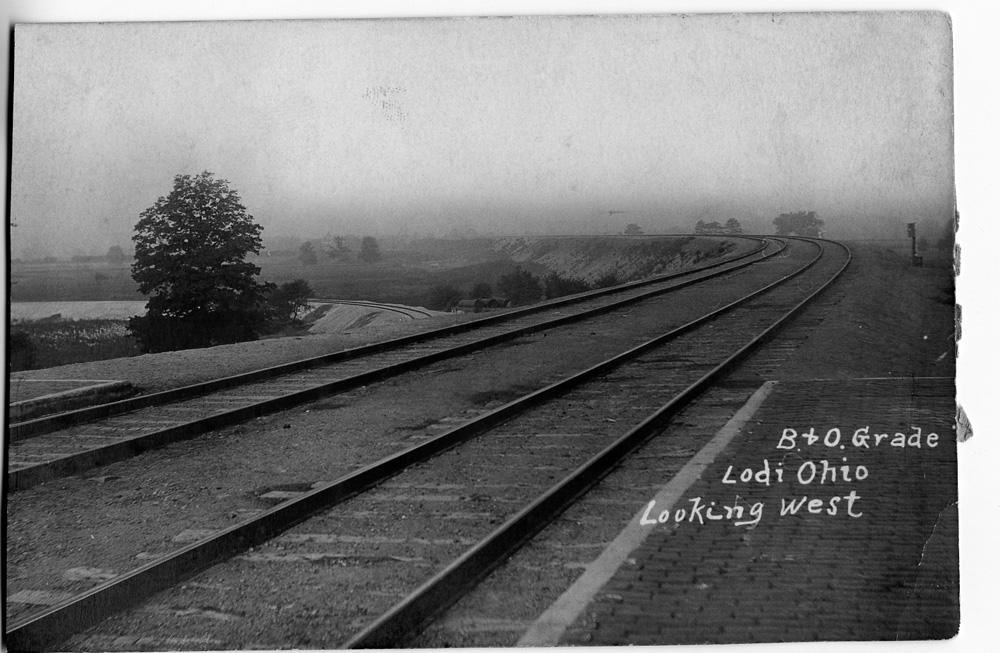 B.+O. Grade
Lodi Ohio
Looking West